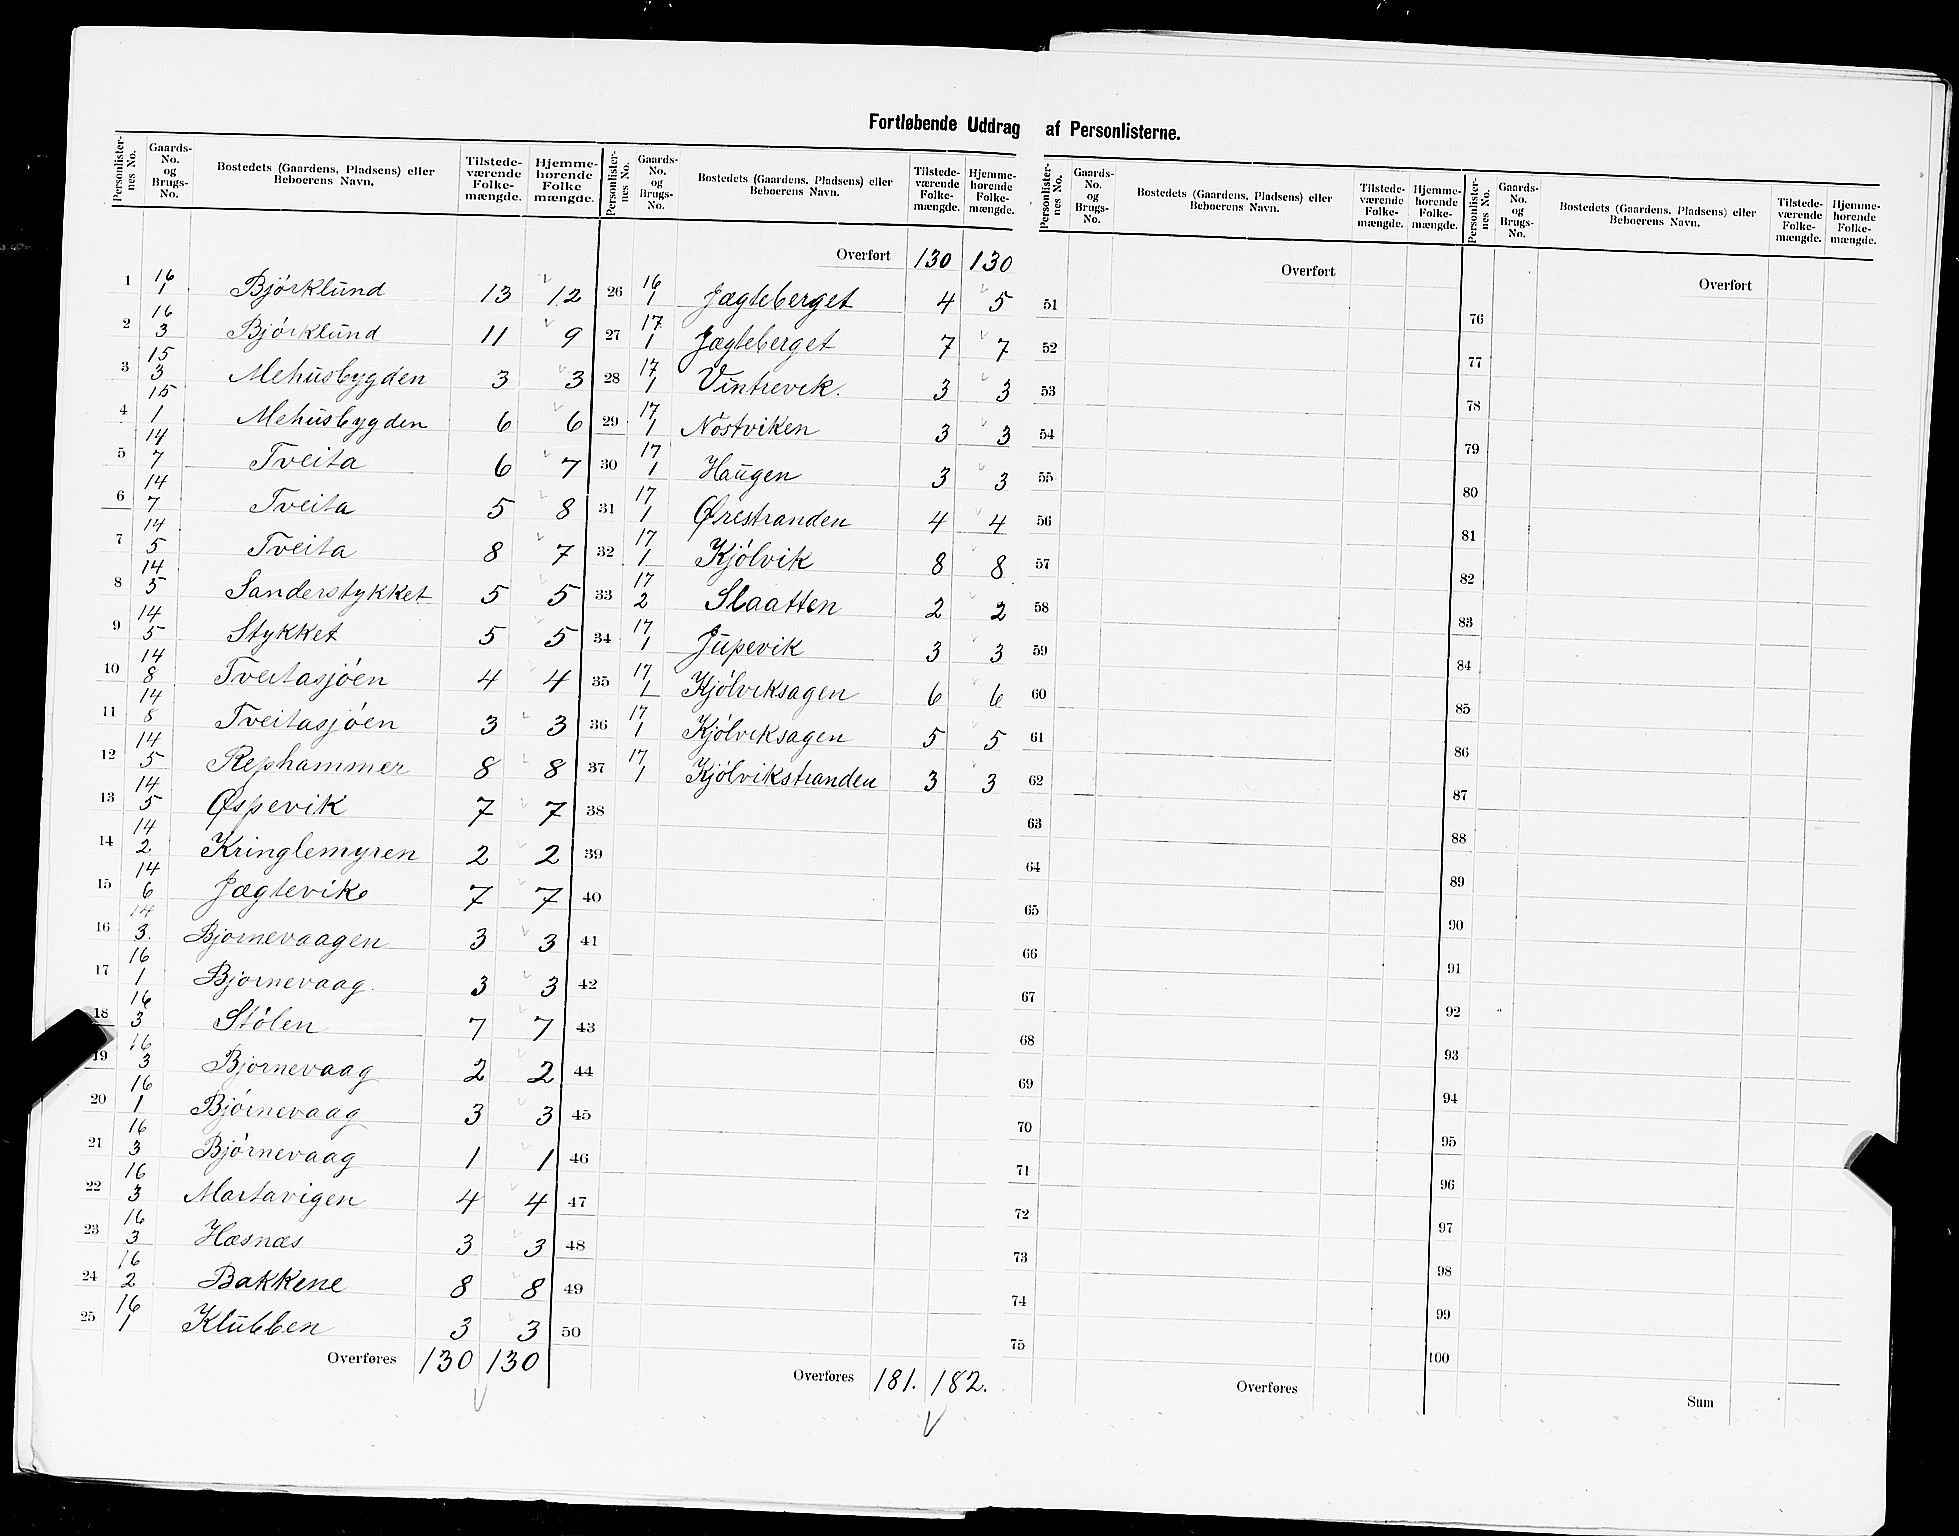 Fortløbende Uddrag af Personlisterne.
Personlisternes No. | Gaards-No. og Brugs-No. | Bostedets (Gaardens, Pladsens) eller Beboerens Navn. | Tilstedeværende Folkemængde. | Hjemmehørende Folkemængde.
1 | 16/1 | Bjørklund | 13 | 12
2 | 16/3 | Bjørklund | 11 | 9
3 | 15/3 | Mehusbygden | 3 | 3
4 | 15/1 | Mehusbygden | 6 | 6
5 | 14/7 | Tveita | 6 | 7
6 | 14/7 | Tveita | 5 | 8
7 | 14/5 | Tveita | 8 | 7
8 | 14/5 | Sanderstykket | 5 | 5
9 | 14/5 | Stykket | 5 | 5
10 | 14/8 | Tveitasjøen | 4 | 4
11 | 14/8 | Tveitasjøen | 3 | 3
12 | 14/5 | Rephammer | 8 | 8
13 | 14/5 | Øspevik | 7 | 7
14 | 14/2 | Kringlemyren | 2 | 2
15 | 14/6 | Jægtevik | 7 | 7
16 | 14/3. | Bjornevaagen | 3 | 3
17 | 16/1 | Bjornevaag. | 3 | 3
18 | 16/3 | Stölen | 7 | 7
19 | 16/3 | Bjornevaag | 2 | 2
20 | 16/1 | Bjørnevaag | 3 | 3
21 | 16/3 | Bjørnevaag | 1 | 1
22 | 16/3 | Martavigen | 4 | 4
23 | 16/3 | Hæsnæs | 3 | 3
24 | 16/2 | Bakkene | 8 | 8
25 | 16/1 | Klubben | 3 | 3
Overføres 130 130
Personlisternes No. | Gaards-No. og Brugs-No. | Bostedets (Gaardens, Pladsens) eller Beboerens Navn. | Tilstedeværende Folkemængde. | Hjemmehørende Folkemængde.
Overført 130 130
26 | 16/1 | Jægteberget | 4 | 5
27 | 17/1 | Jægteberget | 7 | 7
28 | 17/1 | Vintrevik. | 3 | 3
29 | 17/1 | Nostviken | 3 | 3
30 | 17/1 | Haugen | 3 | 3
31 | 17/1 | Ørestranden | 4 | 4
32 | 17/1 | Kjølvik | 8 | 8
33 | 17/2 | Slaatten | 2 | 2
34 | 17/1 | Jupevik | 3 | 3
35 | 17/1 | Kjølviksagen | 6 | 6
36 | 17/1 | Kjølviksagen | 5 | 5
37 | 17/1 | Kjølvikstranden | 3 | 3
38
39
40
41
42
43
44
45
46
47
48
49
50
Overføres 181. 182.
Personlisternes No. | Gaards-No. og Brugs-No. | Bostedets (Gaardens, Pladsens) eller Beboerens Navn. | Tilstedeværende Folkemængde. | Hjemmehørende Folkemængde.
Overført
51
52
53
54
55
56
57
58
59
60
61
62
63
64
65
66
67
68
69
70
71
72
73
74
75
Overføres
Personlisternes No. | Gaards-No. og Brugs-No. | Bostedets (Gaardens, Pladsens) eller Beboerens Navn. | Tilstedeværende Folkemængde. | Hjemmehørende Folkemængde.
Overført
76
77
78
79
80
81
82
83
84
85
86
87
88
89
90
91
92
93
94
95
96
97
98
99
100
Sum